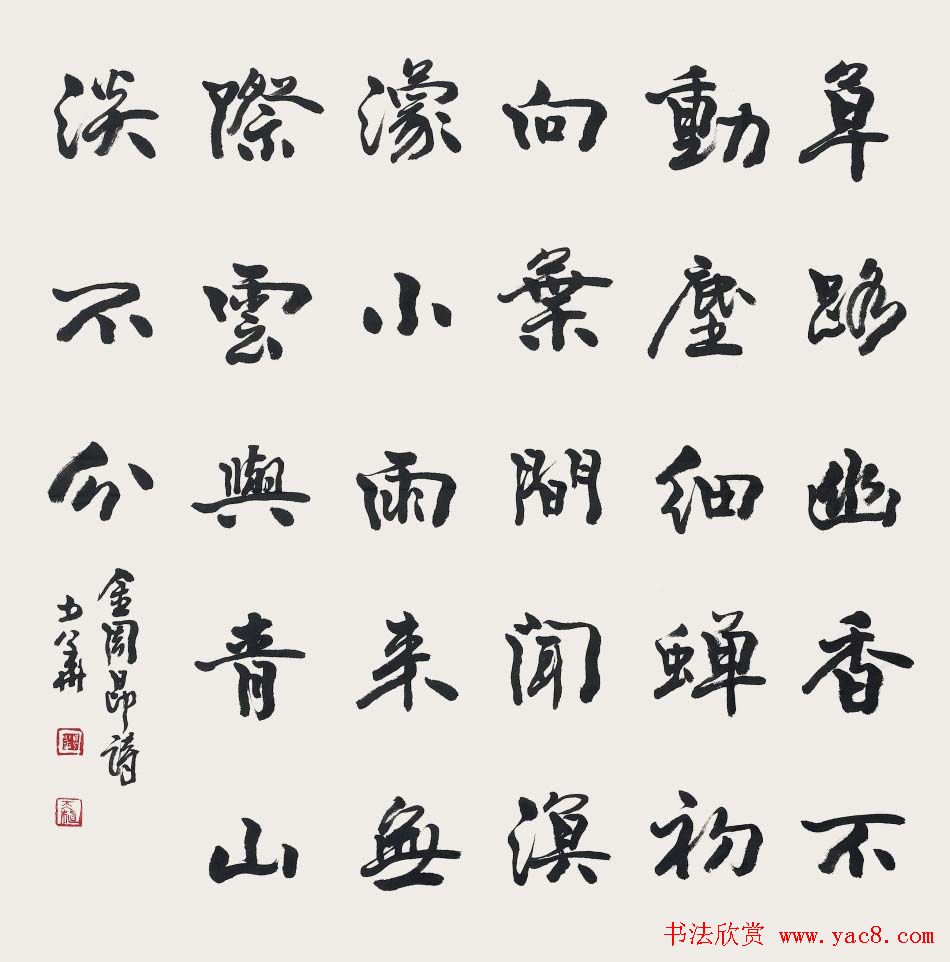 草路幽香不
動塵細蝉初
向葉間聞溟
濛小雨来無
際雲與青山
淡不分
金周昂詩
书法欣赏 www.yac8.com